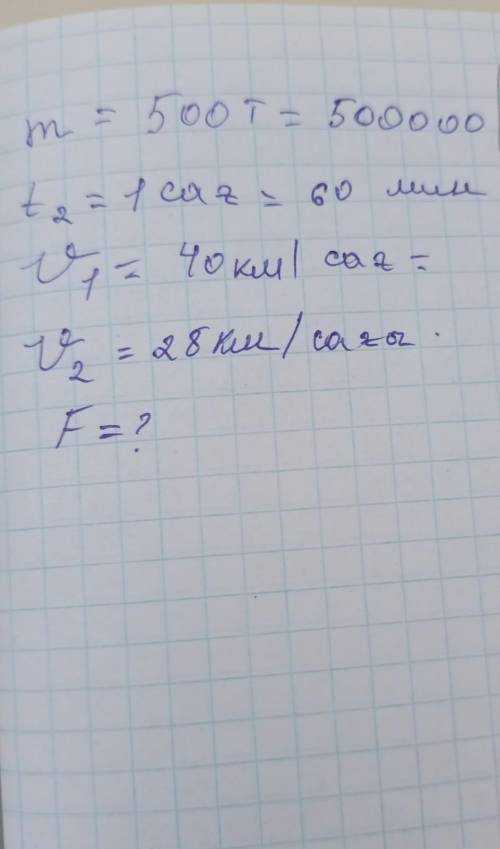 m = 500т = 500000
t₂ = 1 саг = 60 мин
𝒱₁ = 40км/ саг =
𝒱₂ = 28км/сагы.
F = ?